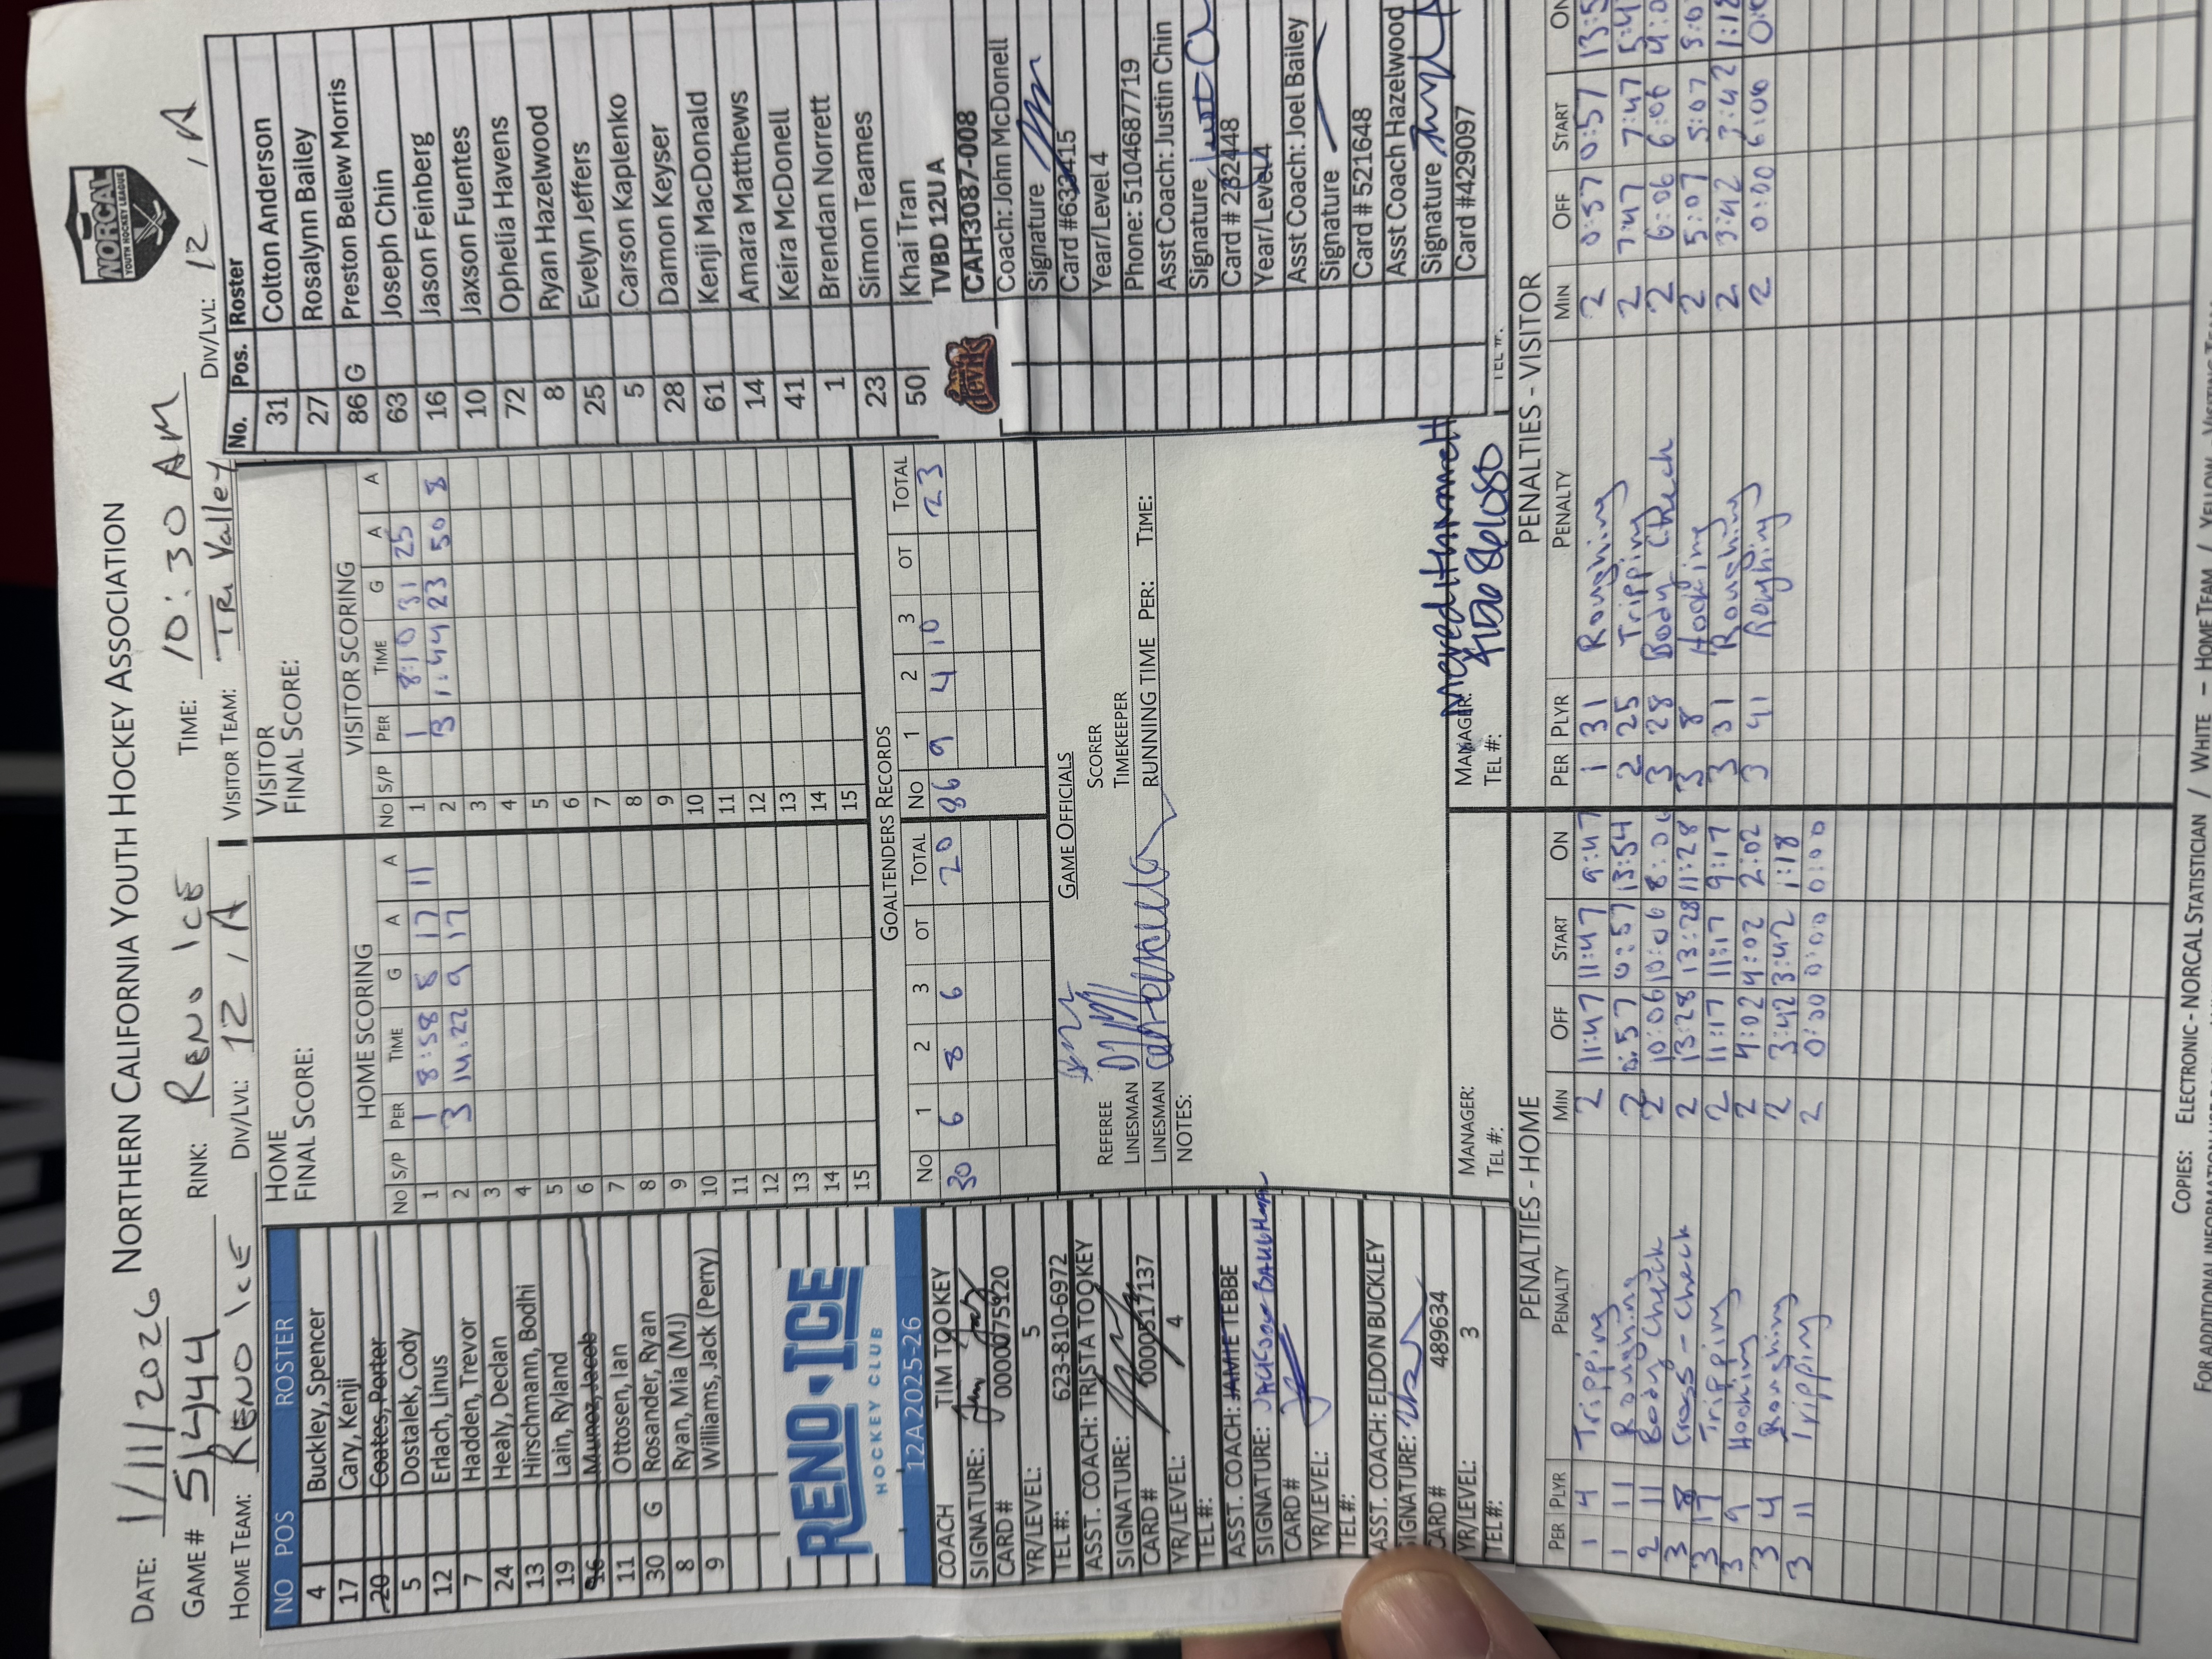 NORTHERN CALIFORNIA YOUTH HOCKEY ASSOCIATION
NORCAL
YOUTH HOCKEY LEAGUE
DATE: 1/11/2026
GAME # 51444 RINK: RENO ICE TIME: 10:30 AM
HOME TEAM: RENO ICE DIV/LVL: 12 / A VISITOR TEAM: TRI Valley DIV/LVL: 12 / A
NO POS ROSTER
4 Buckley, Spencer
17 Cary, Kenji
20 Coates, Porter
5 Dostalek, Cody
12 Erlach, Linus
7 Hadden, Trevor
24 Healy, Declan
13 Hirschmann, Bodhi
19 Lain, Ryland
16 Munoz, Jacob
11 Ottosen, Ian
30 G Rosander, Ryan
8 Ryan, Mia (MJ)
9 Williams, Jack (Perry)
RENO ICE
HOCKEY CLUB
12A 2025-26
COACH TIM TOOKEY
SIGNATURE:
CARD # 0000075120
YR/LEVEL: 5
TEL #: 623-810-6972
ASST. COACH: TRISTA TOOKEY
SIGNATURE:
CARD # 0000517137
YR/LEVEL: 4
TEL #:
ASST. COACH: JAMIE TEBBE
SIGNATURE: JACKSON
CARD #
YR/LEVEL:
TEL #:
ASST. COACH: ELDON BUCKLEY
SIGNATURE:
CARD # 489634
YR/LEVEL: 3
TEL #:
HOME
FINAL SCORE:
HOME SCORING
NO S/P PER TIME G A A
1 1 8:58 8 17 11
2 3 14:22 9 17
3
4
5
6
7
8
9
10
11
12
13
14
15
VISITOR
FINAL SCORE:
VISITOR SCORING
NO S/P PER TIME G A A
1 1 8:10 31 25
2 3 1:44 23 50 8
3
4
5
6
7
8
9
10
11
12
13
14
15
GOALTENDERS RECORDS
NO 1 2 3 OT TOTAL NO 1 2 3 OT TOTAL
30 6 8 6 20 86 9 4 10 23
GAME OFFICIALS
REFEREE SCORER
LINESMAN TIMEKEEPER
LINESMAN RUNNING TIME PER: TIME:
NOTES:
MANAGER:
TEL #:
MANAGER:
TEL #:
No. Pos. Roster
31 Colton Anderson
27 Rosalynn Bailey
86 G Preston Bellew Morris
63 Joseph Chin
16 Jason Feinberg
10 Jaxson Fuentes
72 Ophelia Havens
8 Ryan Hazelwood
25 Evelyn Jeffers
5 Carson Kaplenko
28 Damon Keyser
61 Kenji MacDonald
14 Amara Matthews
41 Keira McDonell
1 Brendan Norrett
23 Simon Teames
50 Khai Tran
devils
TVBD 12U A
CAH3087-008
Coach: John McDonell
Signature
Card #633415
Year/Level 4
Phone: 5104687719
Asst Coach: Justin Chin
Signature
Card # 282448
Year/Level 4
Asst Coach: Joel Bailey
Signature
Card # 521648
Asst Coach Hazelwood
Signature
Card #429097
TEL #:
PENALTIES - HOME
PER PLYR PENALTY MIN OFF START ON
1 4 Tripping 2 11:47 11:47 9:47
1 11 Roughing 2 0:57 0:57 13:54
2 11 Body Check 2 10:06 10:06 8:06
3 8 Cross-Check 2 13:28 13:28 11:28
3 17 Tripping 2 11:17 11:17 9:17
3 9 Hooking 2 4:02 4:02 2:02
3 4 Roughing 2 3:42 3:42 1:18
3 11 Tripping 2 0:00 0:00 0:00
PENALTIES - VISITOR
PER PLYR PENALTY MIN OFF START ON
1 31 Roughing 2 0:57 0:57
2 25 Tripping 2 7:47 7:47
3 28 Body Check 2 6:06 6:06
3 8 Hooking 2 5:07 5:07
3 31 Roughing 2 3:42 3:42 1:18
3 41 Roughing 2 0:00 6:00
COPIES: ELECTRONIC - NORCAL STATISTICIAN / WHITE - HOME TEAM / YELLOW